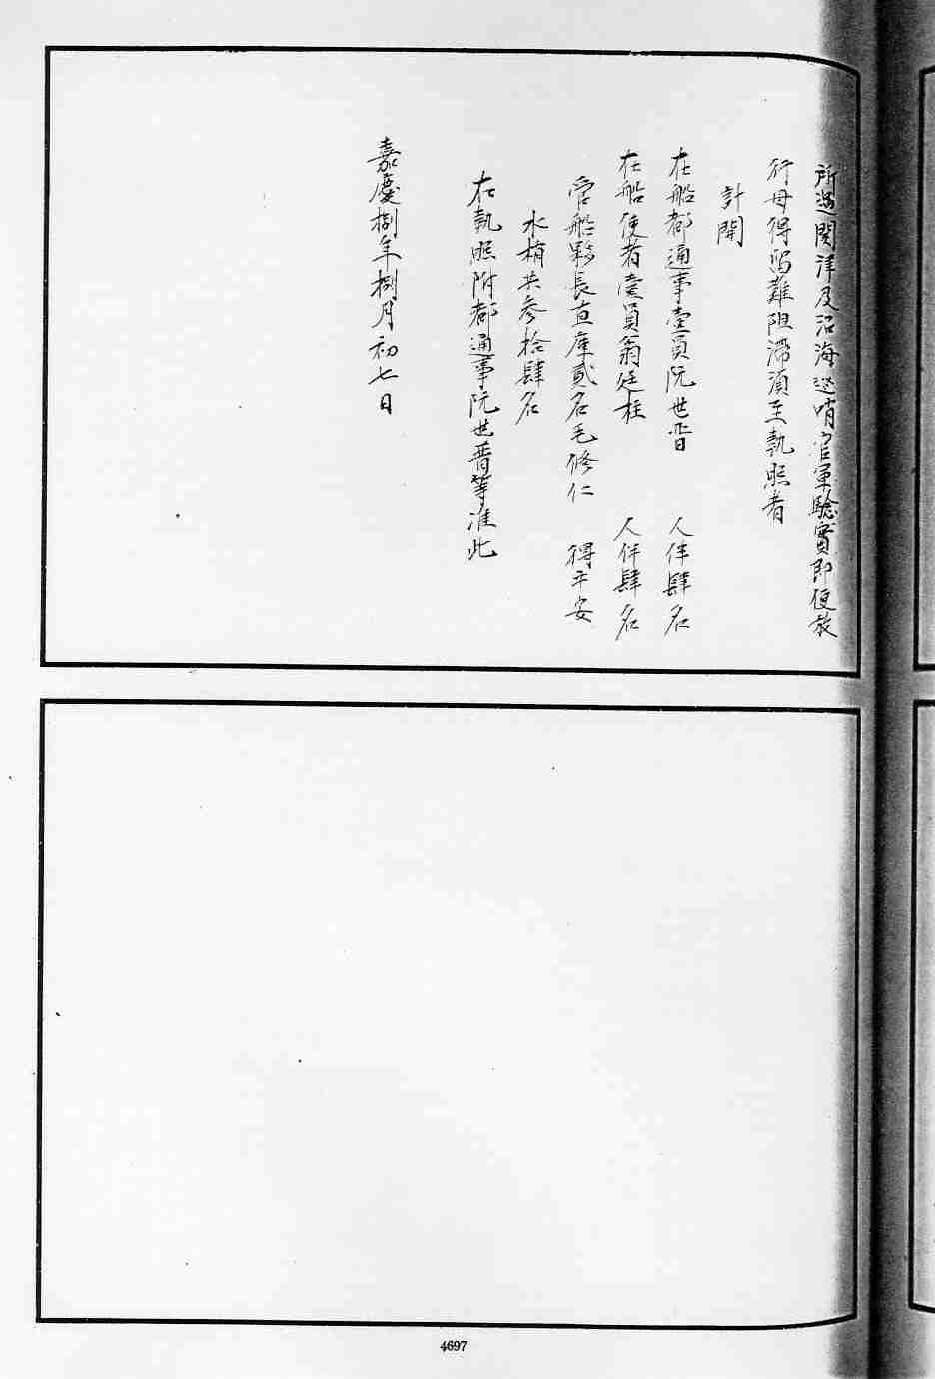 所遇關津及沿海巡哨官軍驗實即便放
行毋得留難阻滯須至執照者
計開
在船都通事壹員阮世晋 人伴肆名
在船使者壹員翁廷柱 人伴肆名
管船夥長直庫貳名毛修仁 得平安
水梢共參拾肆名
右執照附都通事阮世普等准此
嘉慶捌年捌月初七日
4697